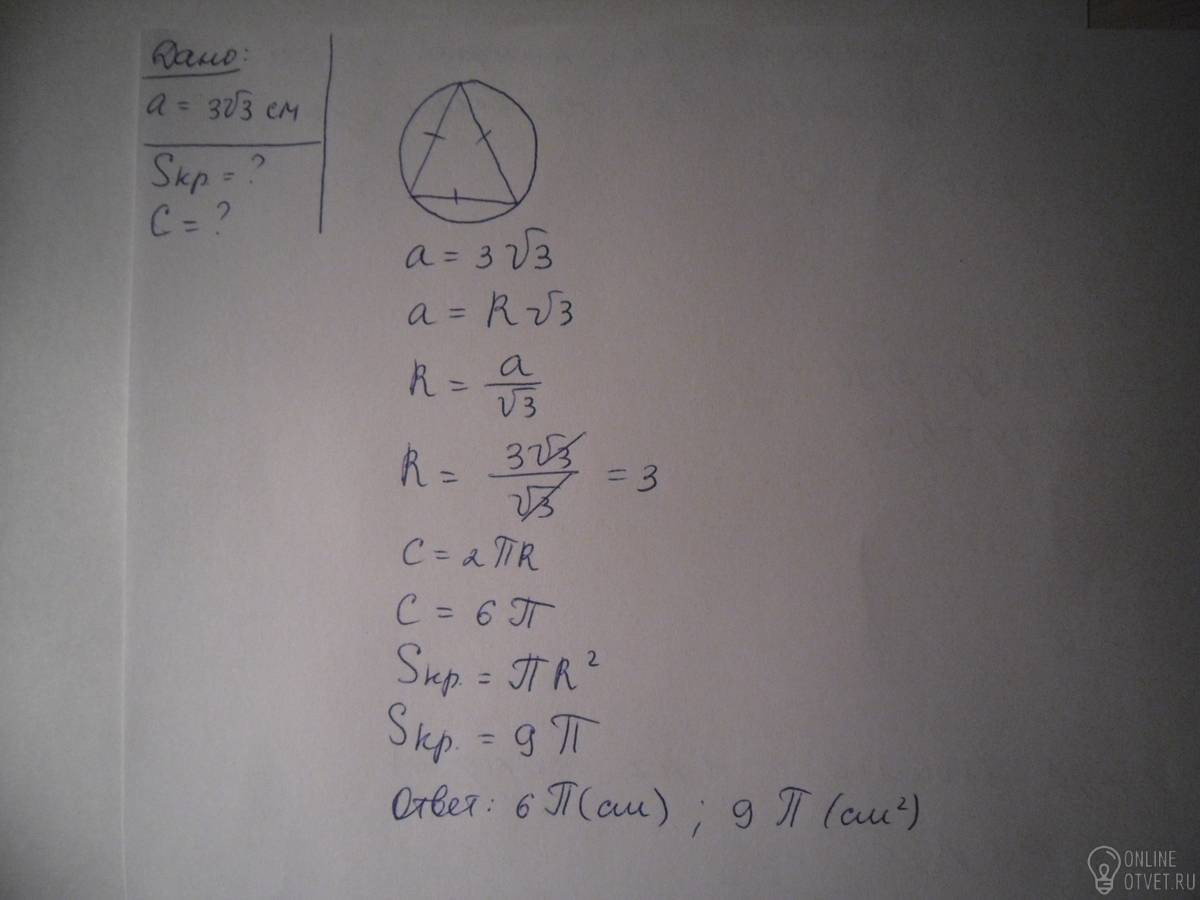 Дано:
a = 3√3 см
Sкр = ?
C = ?
a = 3√3
a = R√3
R = a/√3
R = 3√3/√3 = 3
C = 2πR
C = 6π
Sкр. = πR²
Sкр. = 9π
Ответ: 6π(см) ; 9π (см²)
ONLINE
OTVET.RU